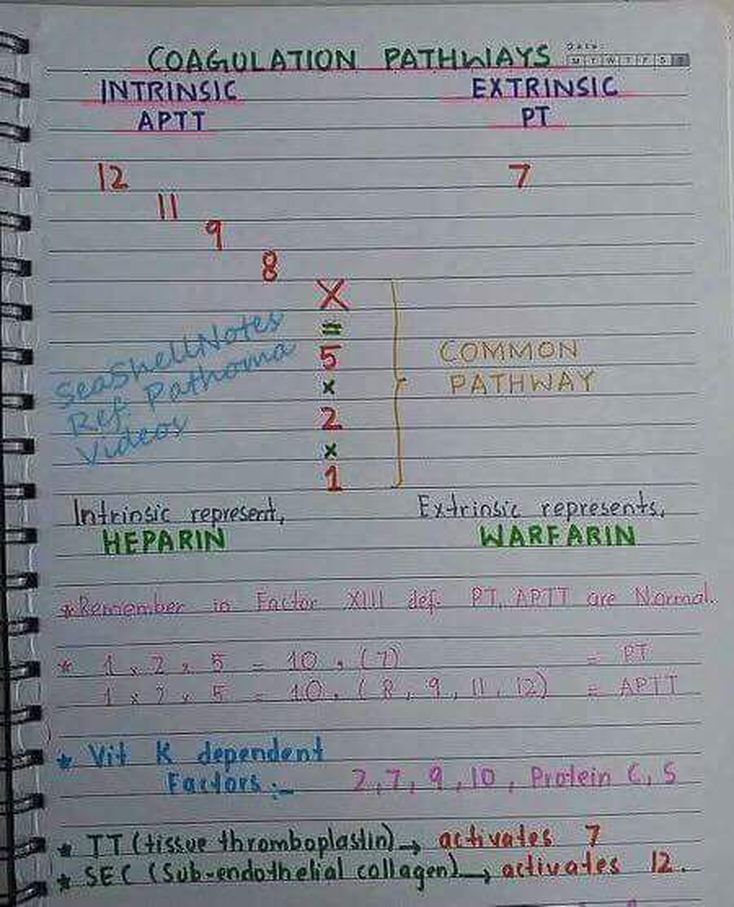 COAGULATION PATHWAYS
DATE:
M T W T F S S
INTRINSIC EXTRINSIC
APTT PT
12 7
11
9
8
X
=
5
COMMON
x
PATHWAY
2
x
1
SeaShellNotes
Ref. Pathoma
Videos
Intrinsic represent, Extrinsic represents,
HEPARIN WARFARIN
*Remember in Factor XIII def. PT, APTT are Normal.
* 1 x 2 x 5 = 10, (7) = PT
1 x 2 x 5 = 10, (8, 9, 11, 12) = APTT
* Vit K dependent
Factors:- 2, 7, 9, 10, Protein C, S
* TT (tissue thromboplastin) → activates 7
* SEC (Sub-endothelial collagen) → activates 12.